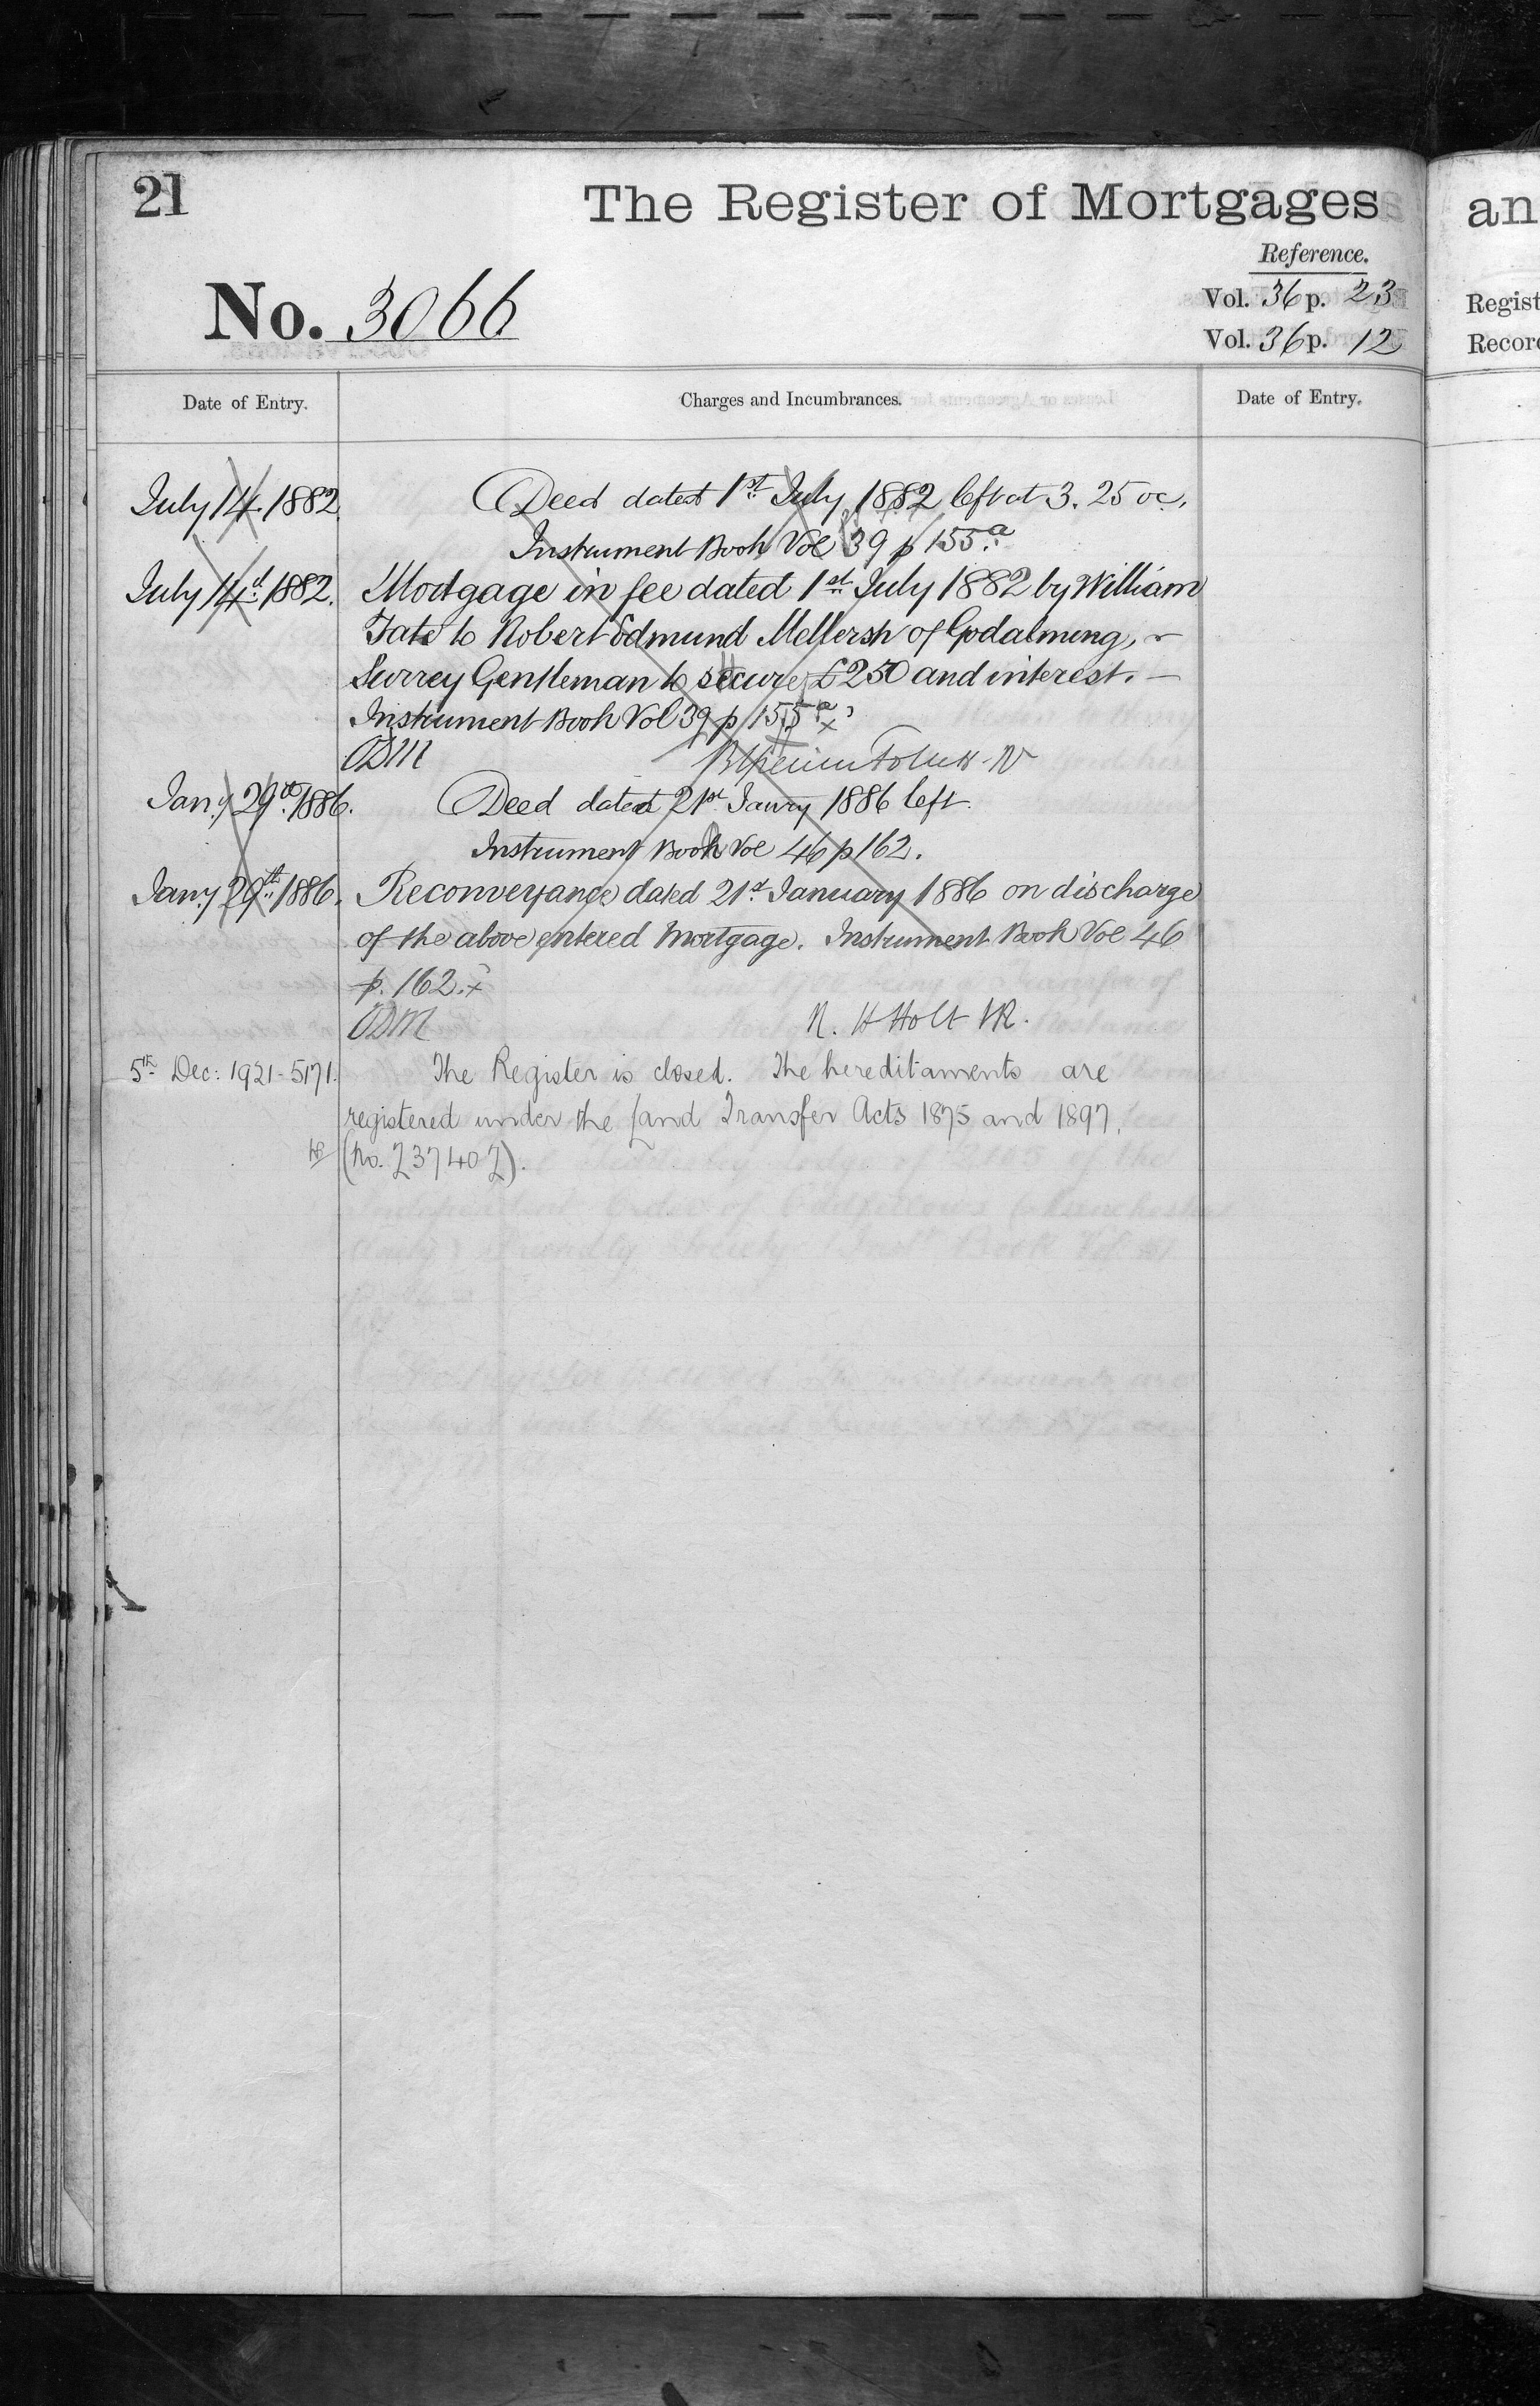 21
The Register of Mortgages
an
Reference.
No. 3066
Vol. 36 p. 23
Regist
Vol. 36 p. 12
Recor
Date of Entry.
Charges and Incumbrances.
Date of Entry.
July 14. 1882. Deed dated 1st July 1882 left at 3. 25 oc.
Instrument Book Vol 39 p 155.a
July 14th 1882. Mortgage in fee dated 1st July 1882 by William
Tate to Robert Edmund Mellersh of Godalming,
Surrey Gentleman to secure £250 and interest. —
Instrument Book Vol 39 p 155a x
ODM
Jany 29th 1886. Deed dated 21st Janry 1886 left.
Instrument Book Vol 46 p 162.
Jany 29th 1886. Reconveyance dated 21st January 1886 on discharge
of the above entered Mortgage. Instrument Book Vol 46
p. 162. x
ODM N. H Holt
5th Dec: 1921 - 5171. The Register is closed. The hereditaments are
registered under the Land Transfer Acts 1875 and 1897.
(No. 237407).